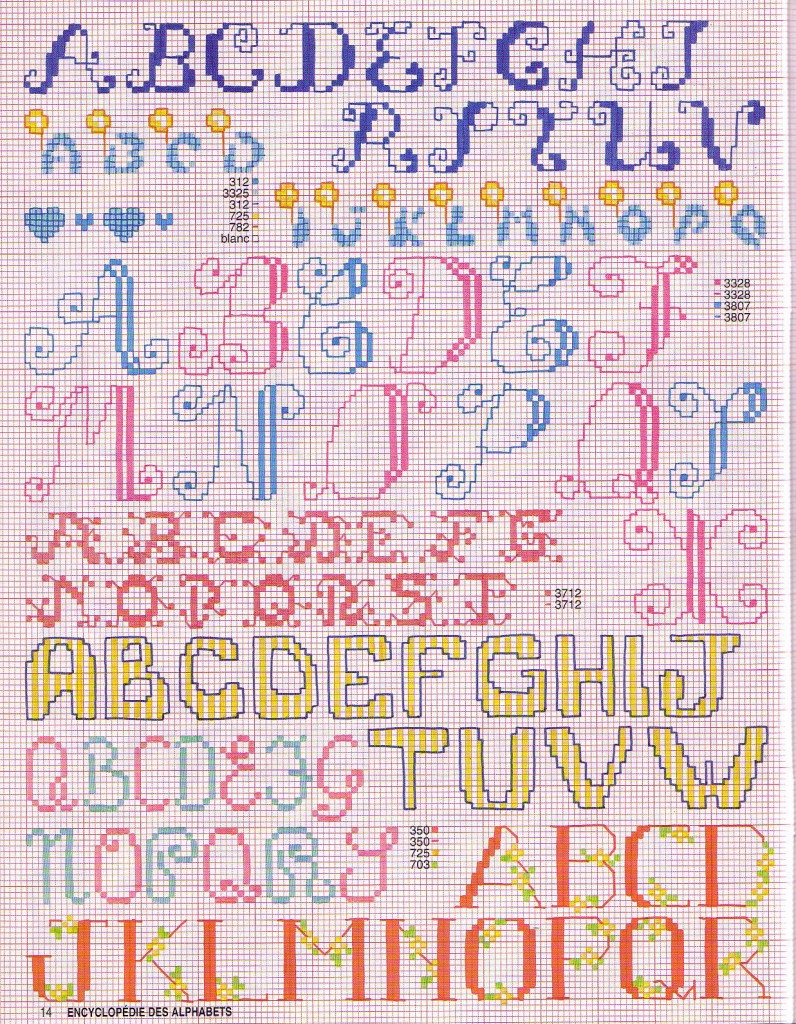 A B C D E F G H I
R S T U V
A B C D
312
3325
312
725
782
blanc
I J K L M N O P Q
A B C D E F
3328
3328
3807
3807
M N O P Q Y
A B C D E F G
X
N O P Q R S T
3712
3712
A B C D E F G H I J
T U V W
a B C D E F G
N O P Q R Y
350
350
725
703
A B C D
J K L M N O P Q R
14 ENCYCLOPÉDIE DES ALPHABETS